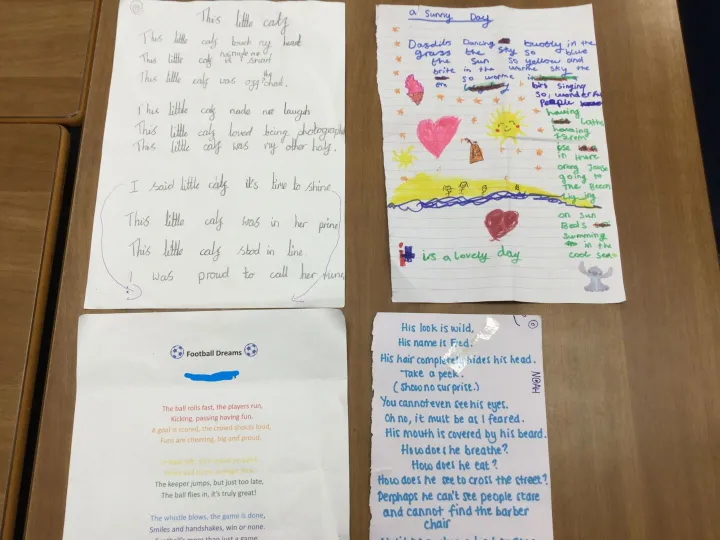 This little calf
This little calf touch my heart
This little calf made me smart
This little calf was off the chart.
This little calf made me laugh
This little calf loved being photographe
This little calf was my other half.
I said little calf it's time to shine
This little calf was in her prime
This little calf stod in line
I was proud to call her mine
a Sunny Day
Dasdils Dancing in the
grass the sky so blue
the sun so yellow and
brite in the worme sky the
so worme in
birs singing
So, wonderful
People
having
Latte
howing
in there
oreng Joose
going to
The Beech
Lig ing
on sun
Beds
Swimming
in the
cool sea
it is a lovely day
Football Dreams
The ball rolls fast, the players run,
Kicking, passing having fun,
A goal is scored, the crowd shouts loud,
Fans are cheering, big and proud.
The keeper jumps, but just too late,
The ball flies in, it's truly great!
The whistle blows, the game is done,
Smiles and handshakes, win or none.
Football's more than just a game
NOAH
His look is wild,
His name is Fred.
His hair completely hides his head.
Take a peek.
(Show no surprise.)
You cannot even see his eyes.
Oh no, it must be as I feared.
His mouth is covered by his beard.
How does he breathe?
How does he eat?
How does he see to cross the street?
Perphaps he can't see people stare
and cannot find the barber
chair